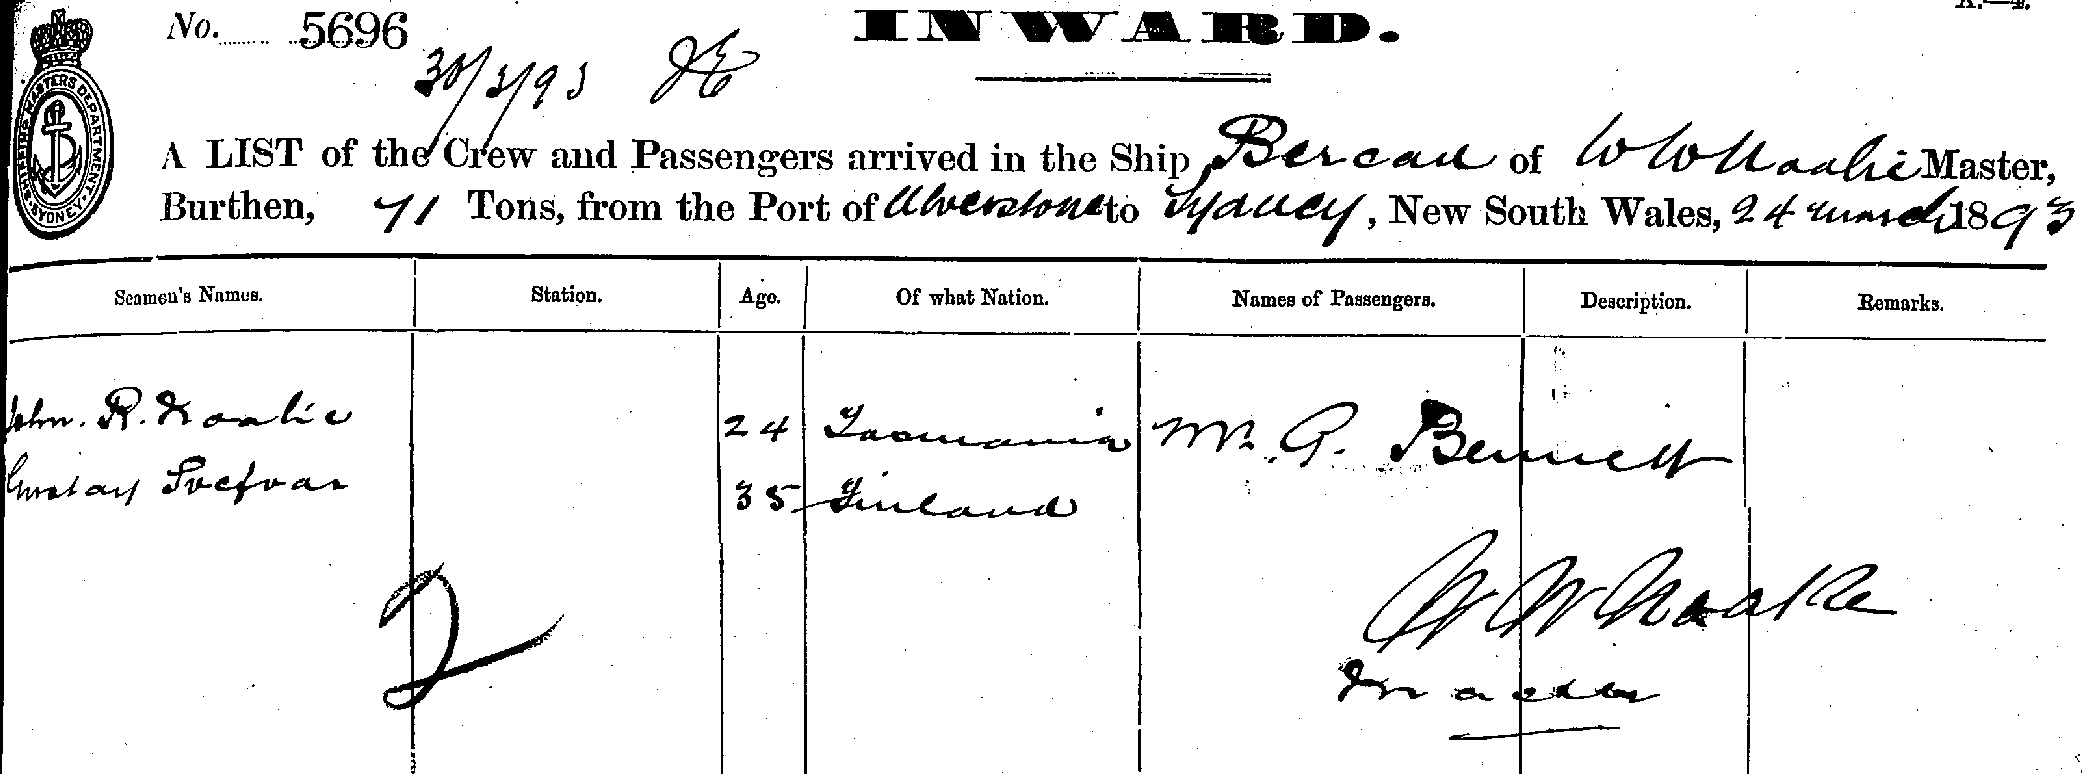 No. 5696
INWARD.
30/3/93
SHIPPING MASTERS DEPARTMENT SYDNEY
A LIST of the Crew and Passengers arrived in the Ship Bercau of W W Noake Master,
Burthen, 71 Tons, from the Port of Ulverstone to Sydney, New South Wales, 24 March 1893
Seamen's Names. Station. Age. Of what Nation. Names of Passengers. Description. Remarks.
John. R. Noake 24 Tasmania Mr. G. Bennett
Gustaf 35 Finland
2
W W Noake
Master